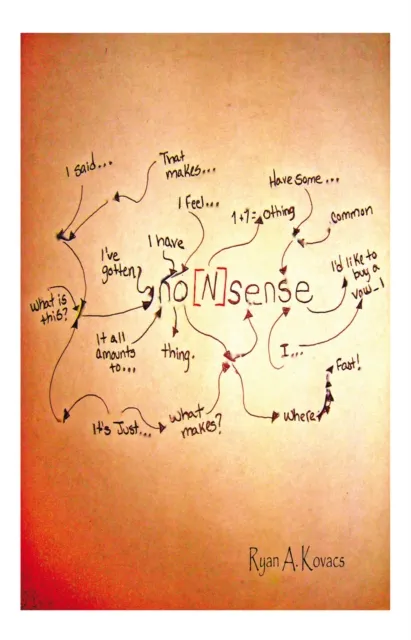 I said...
That
makes...
I Feel...
Have Some...
1+7= othing
Common
I've
gotten
I have
I'd like to
buy a
vow_l
no[N]sense
What is
this?
It all
amounts
to...
thing.
I...
Fast!
It's Just...
What
makes?
Where
Ryan A. Kovacs